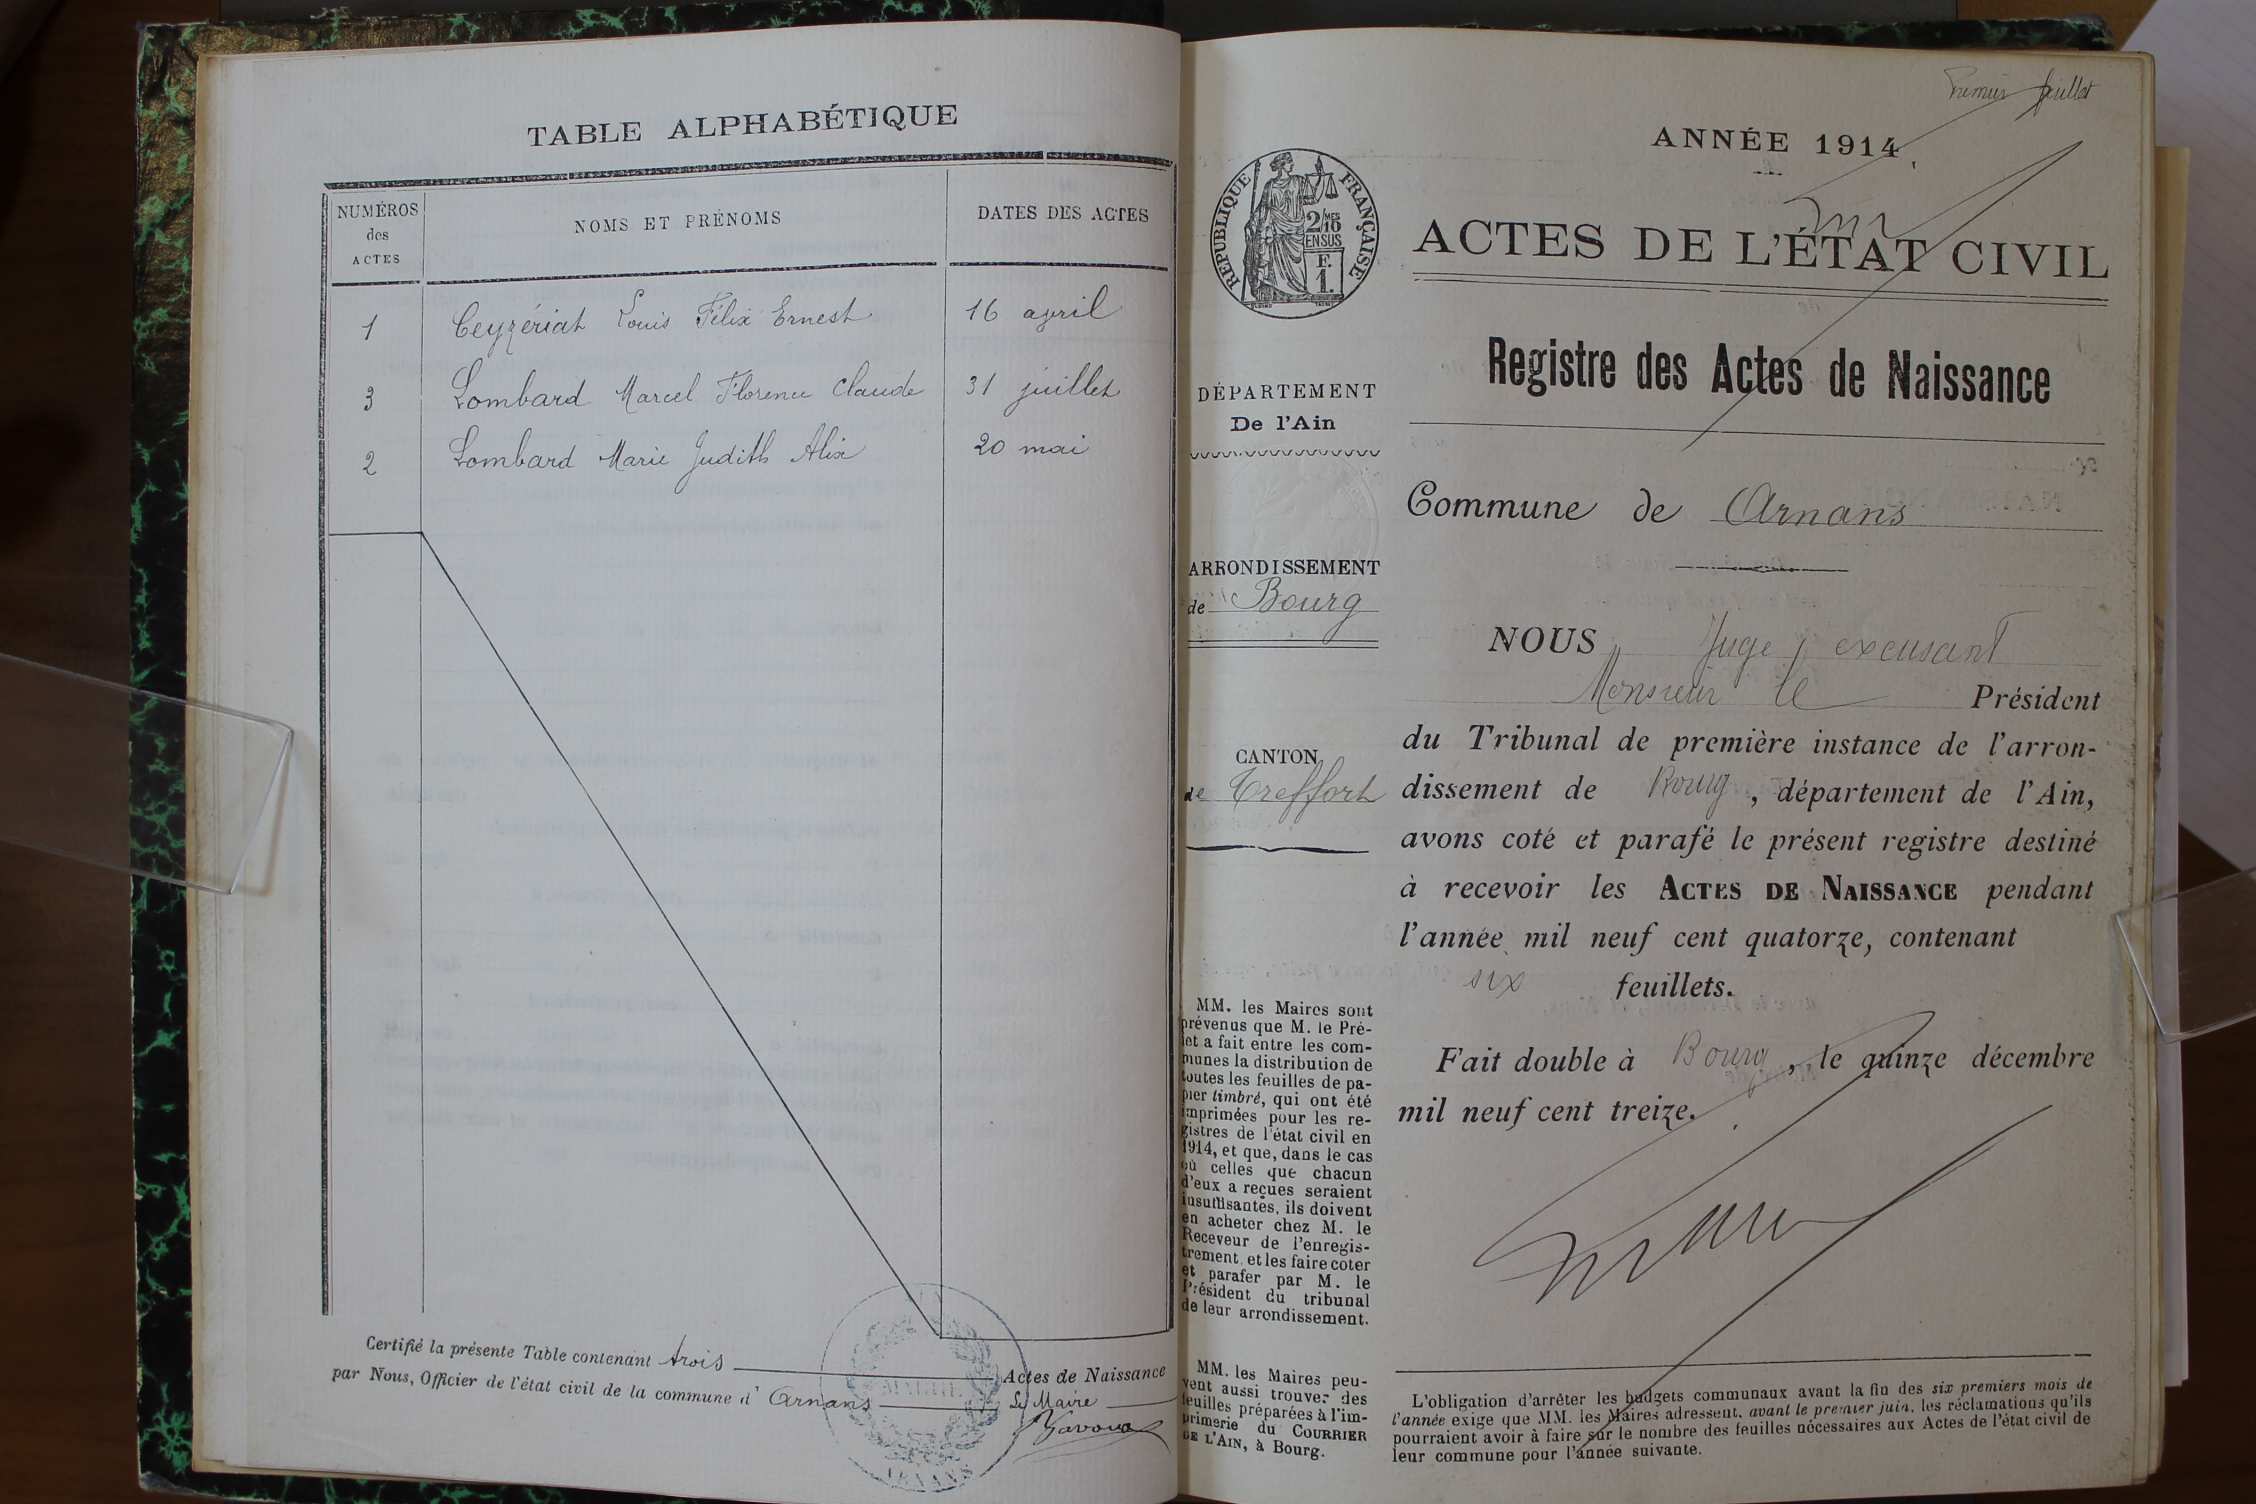 TABLE ALPHABÉTIQUE
NUMÉROS
des
ACTES
NOMS ET PRÉNOMS
DATES DES ACTES
1 Ceyzériat Louis Félix Ernest 16 avril
3 Lombard Marcel Florence Claude 31 juillet
2 Lombard Marie Judith Alix 20 mai
Certifié la présente Table contenant trois Actes de Naissance
par Nous, Officier de l'état civil de la commune d' Arnans Le Maire
MAIRIE
ARNANS
Premier feuillet
ANNÉE 1914
RÉPUBLIQUE FRANÇAISE
2/10
MES
EN SUS
F.
1.
ACTES DE L'ÉTAT CIVIL
Registre des Actes de Naissance
DÉPARTEMENT
De l'Ain
Commune de Arnans
ARRONDISSEMENT
de Bourg
CANTON
de Treffort
NOUS Juge, excusant
Monsieur le Président
du Tribunal de première instance de l'arron-
dissement de Bourg, département de l'Ain,
avons coté et parafé le présent registre destiné
à recevoir les ACTES DE NAISSANCE pendant
l'année mil neuf cent quatorze, contenant
six feuillets.
Fait double à Bourg, le quinze décembre
mil neuf cent treize.
MM. les Maires sont
prévenus que M. le Pré-
fet a fait entre les com-
munes la distribution de
toutes les feuilles de pa-
pier timbré, qui ont été
imprimées pour les re-
gistres de l'état civil en
1914, et que, dans le cas
où celles que chacun
d'eux a reçues seraient
insuffisantes, ils doivent
en acheter chez M. le
Receveur de l'enregis-
trement, et les faire coter
et parafer par M. le
Président du tribunal
de leur arrondissement.
MM. les Maires peu-
vent aussi trouver des
feuilles préparées à l'im-
primerie du COURRIER
DE L'AIN, à Bourg.
L'obligation d'arrêter les budgets communaux avant la fin des six premiers mois de
l'année exige que MM. les Maires adressent, avant le premier juin, les réclamations qu'ils
pourraient avoir à faire sur le nombre des feuilles nécessaires aux Actes de l'état civil de
leur commune pour l'année suivante.